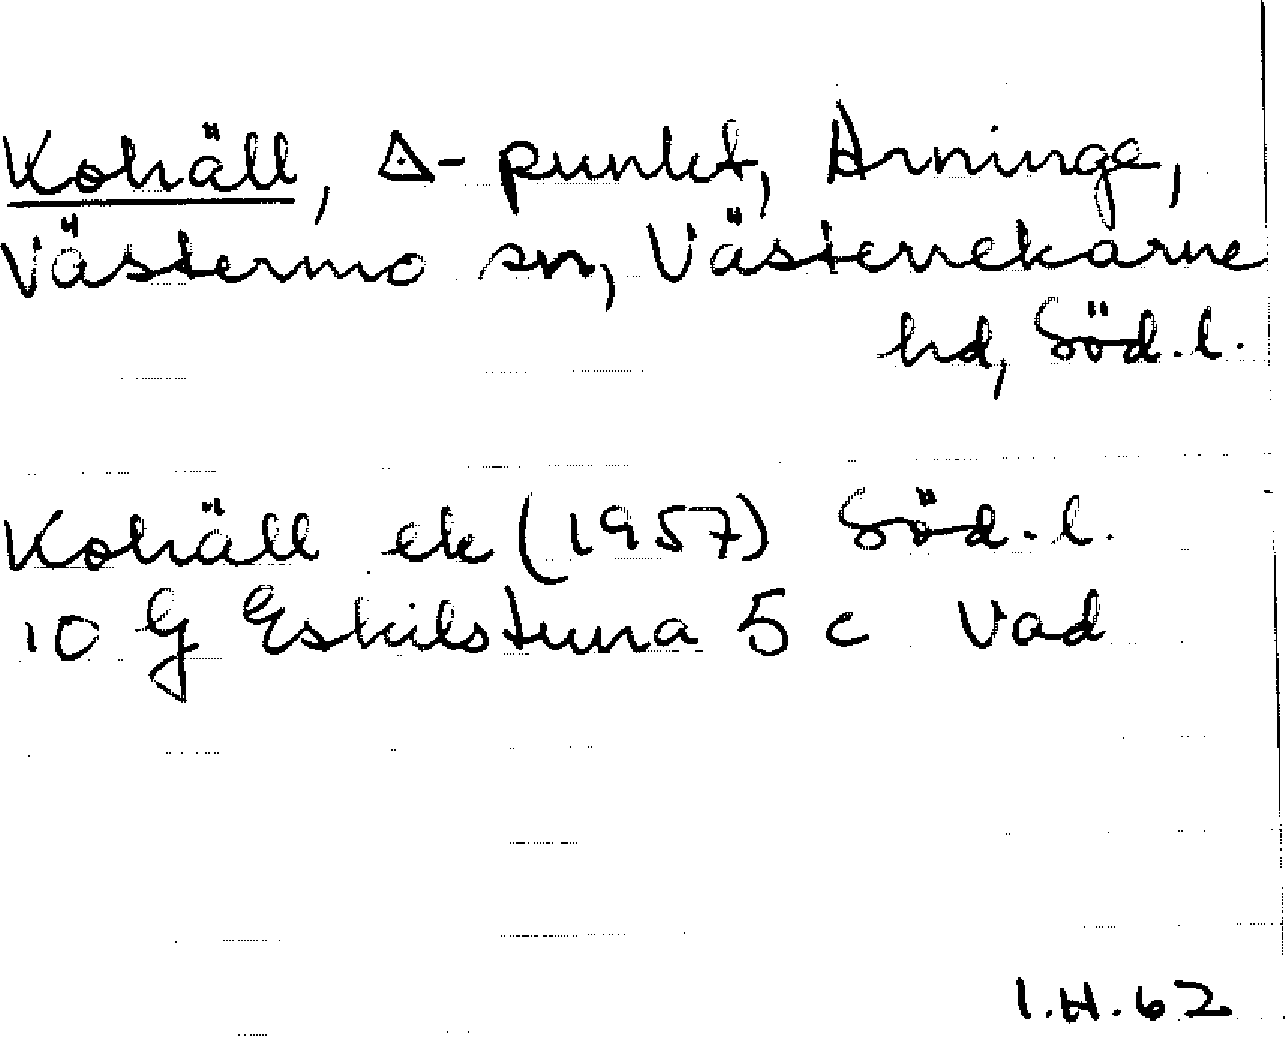 Kohäll, △-punkt, Arninge,
Västermo sn, Västerrekarne
hd, Söd.l.
Kohäll ek (1957) Söd.l.
10 G Eskilstuna 5 c Vad
I.H.62